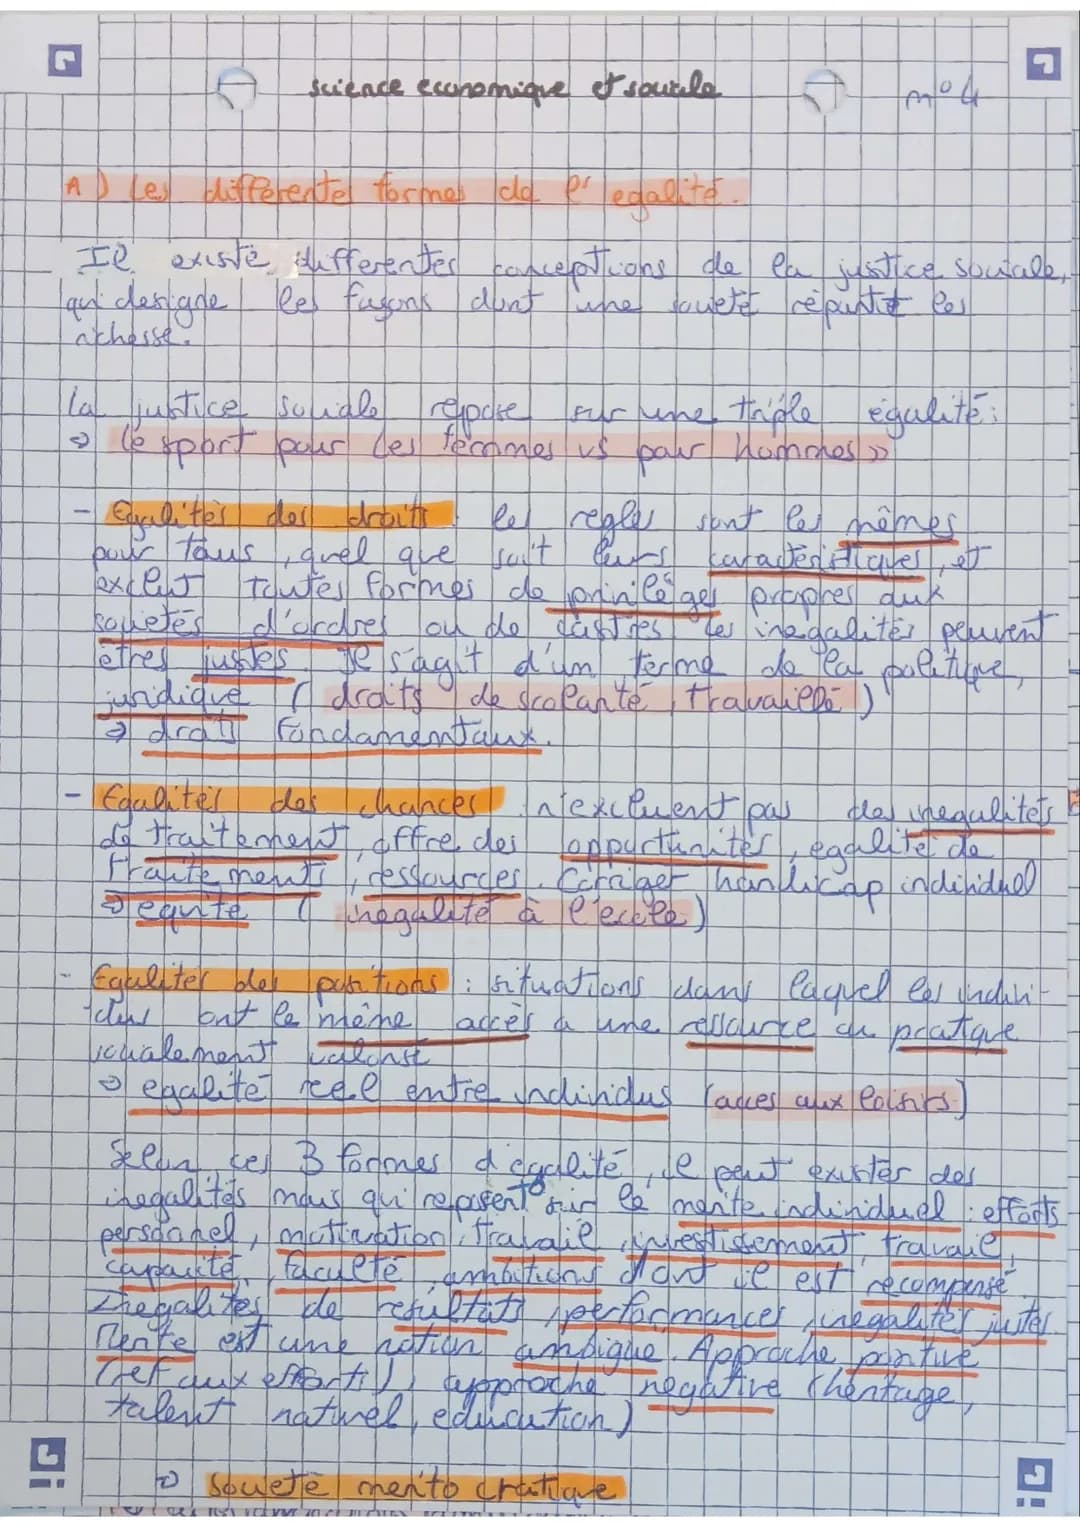 science economique et sociale
n°4
A) Les differentes formes de l'egalité.
Il existe differentes conceptions de la justice sociale,
qui designe les façons dont une société répartit les
richesse.
La justice sociale repose sur une triple égalité:
→ le sport pour les femmes vs pour hommes »
- Egalités des droits : les regles sont les mêmes
pour tous, quel que soit leurs caractéristiques, et
exclut toutes formes de privilèges propres aux
sociétés d'ordres ou de castres les inegalités peuvent
êtres justes. Il s'agit d'un terme de la politique,
juridique ( droits de scolarité, travaillé )
→ droits fondamentaux.
- Egalités des chances : n'excluent pas des inegalités
de traitement, offre des opportunités, egalité de
traitements, ressources. Corriger handicap individuel
→ equité ( inegalité à l'ecole )
- Egalités des positions : situations dans laquel les indivi-
dus ont le même accès à une ressource ou pratique
socialement valorisé
→ egalité réel entre individus (acces aux loisirs)
Selon ces 3 formes d'égalité, il peut exister des
inegalités mais qui reposent sur le merite individuel : efforts
personnel, motivation, travail, investissement, travail,
capacité, faculté, ambitions dont il est récompensé
Inegalités de resultats, performances, inegalités justes.
Merite est une notion ambigue. Approche positive
(ref aux efforts), approche negative (héritage,
talent naturel, education)
→ société méritocratique